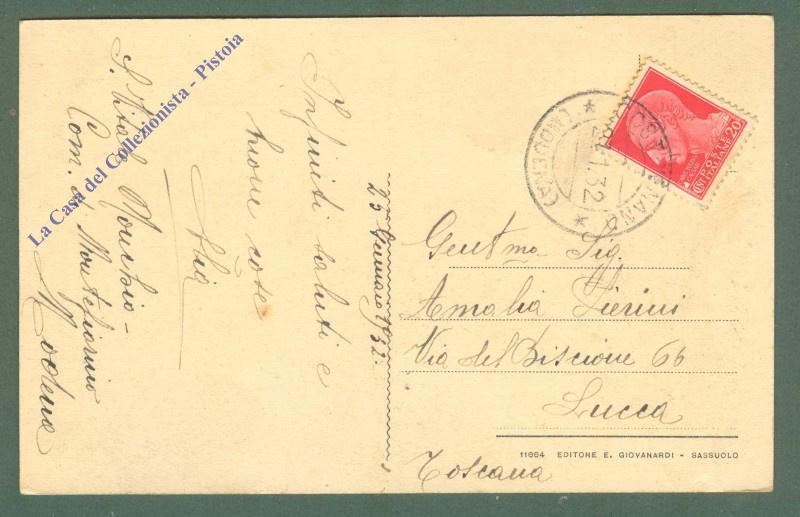 La Casa del Collezionista - Pistoia
Com. di Montefiorino
Modena
Infiniti saluti e
buone cose
25 Gennaio 1932.
32
(MODENA)
POSTE
ITALIANE
CENT
20
Gent.ma Sig.
Amalia Pierini
Via del Biscione 66
Lucca
Toscana
11664 EDITORE E. GIOVANARDI - SASSUOLO